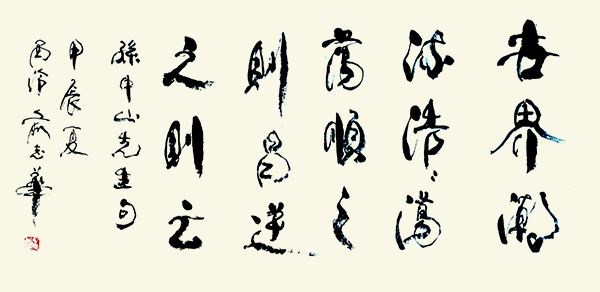 世界潮
流浩々蕩
蕩順之
則昌逆
之則亡
孫中山先生句
甲辰夏
西泠志華